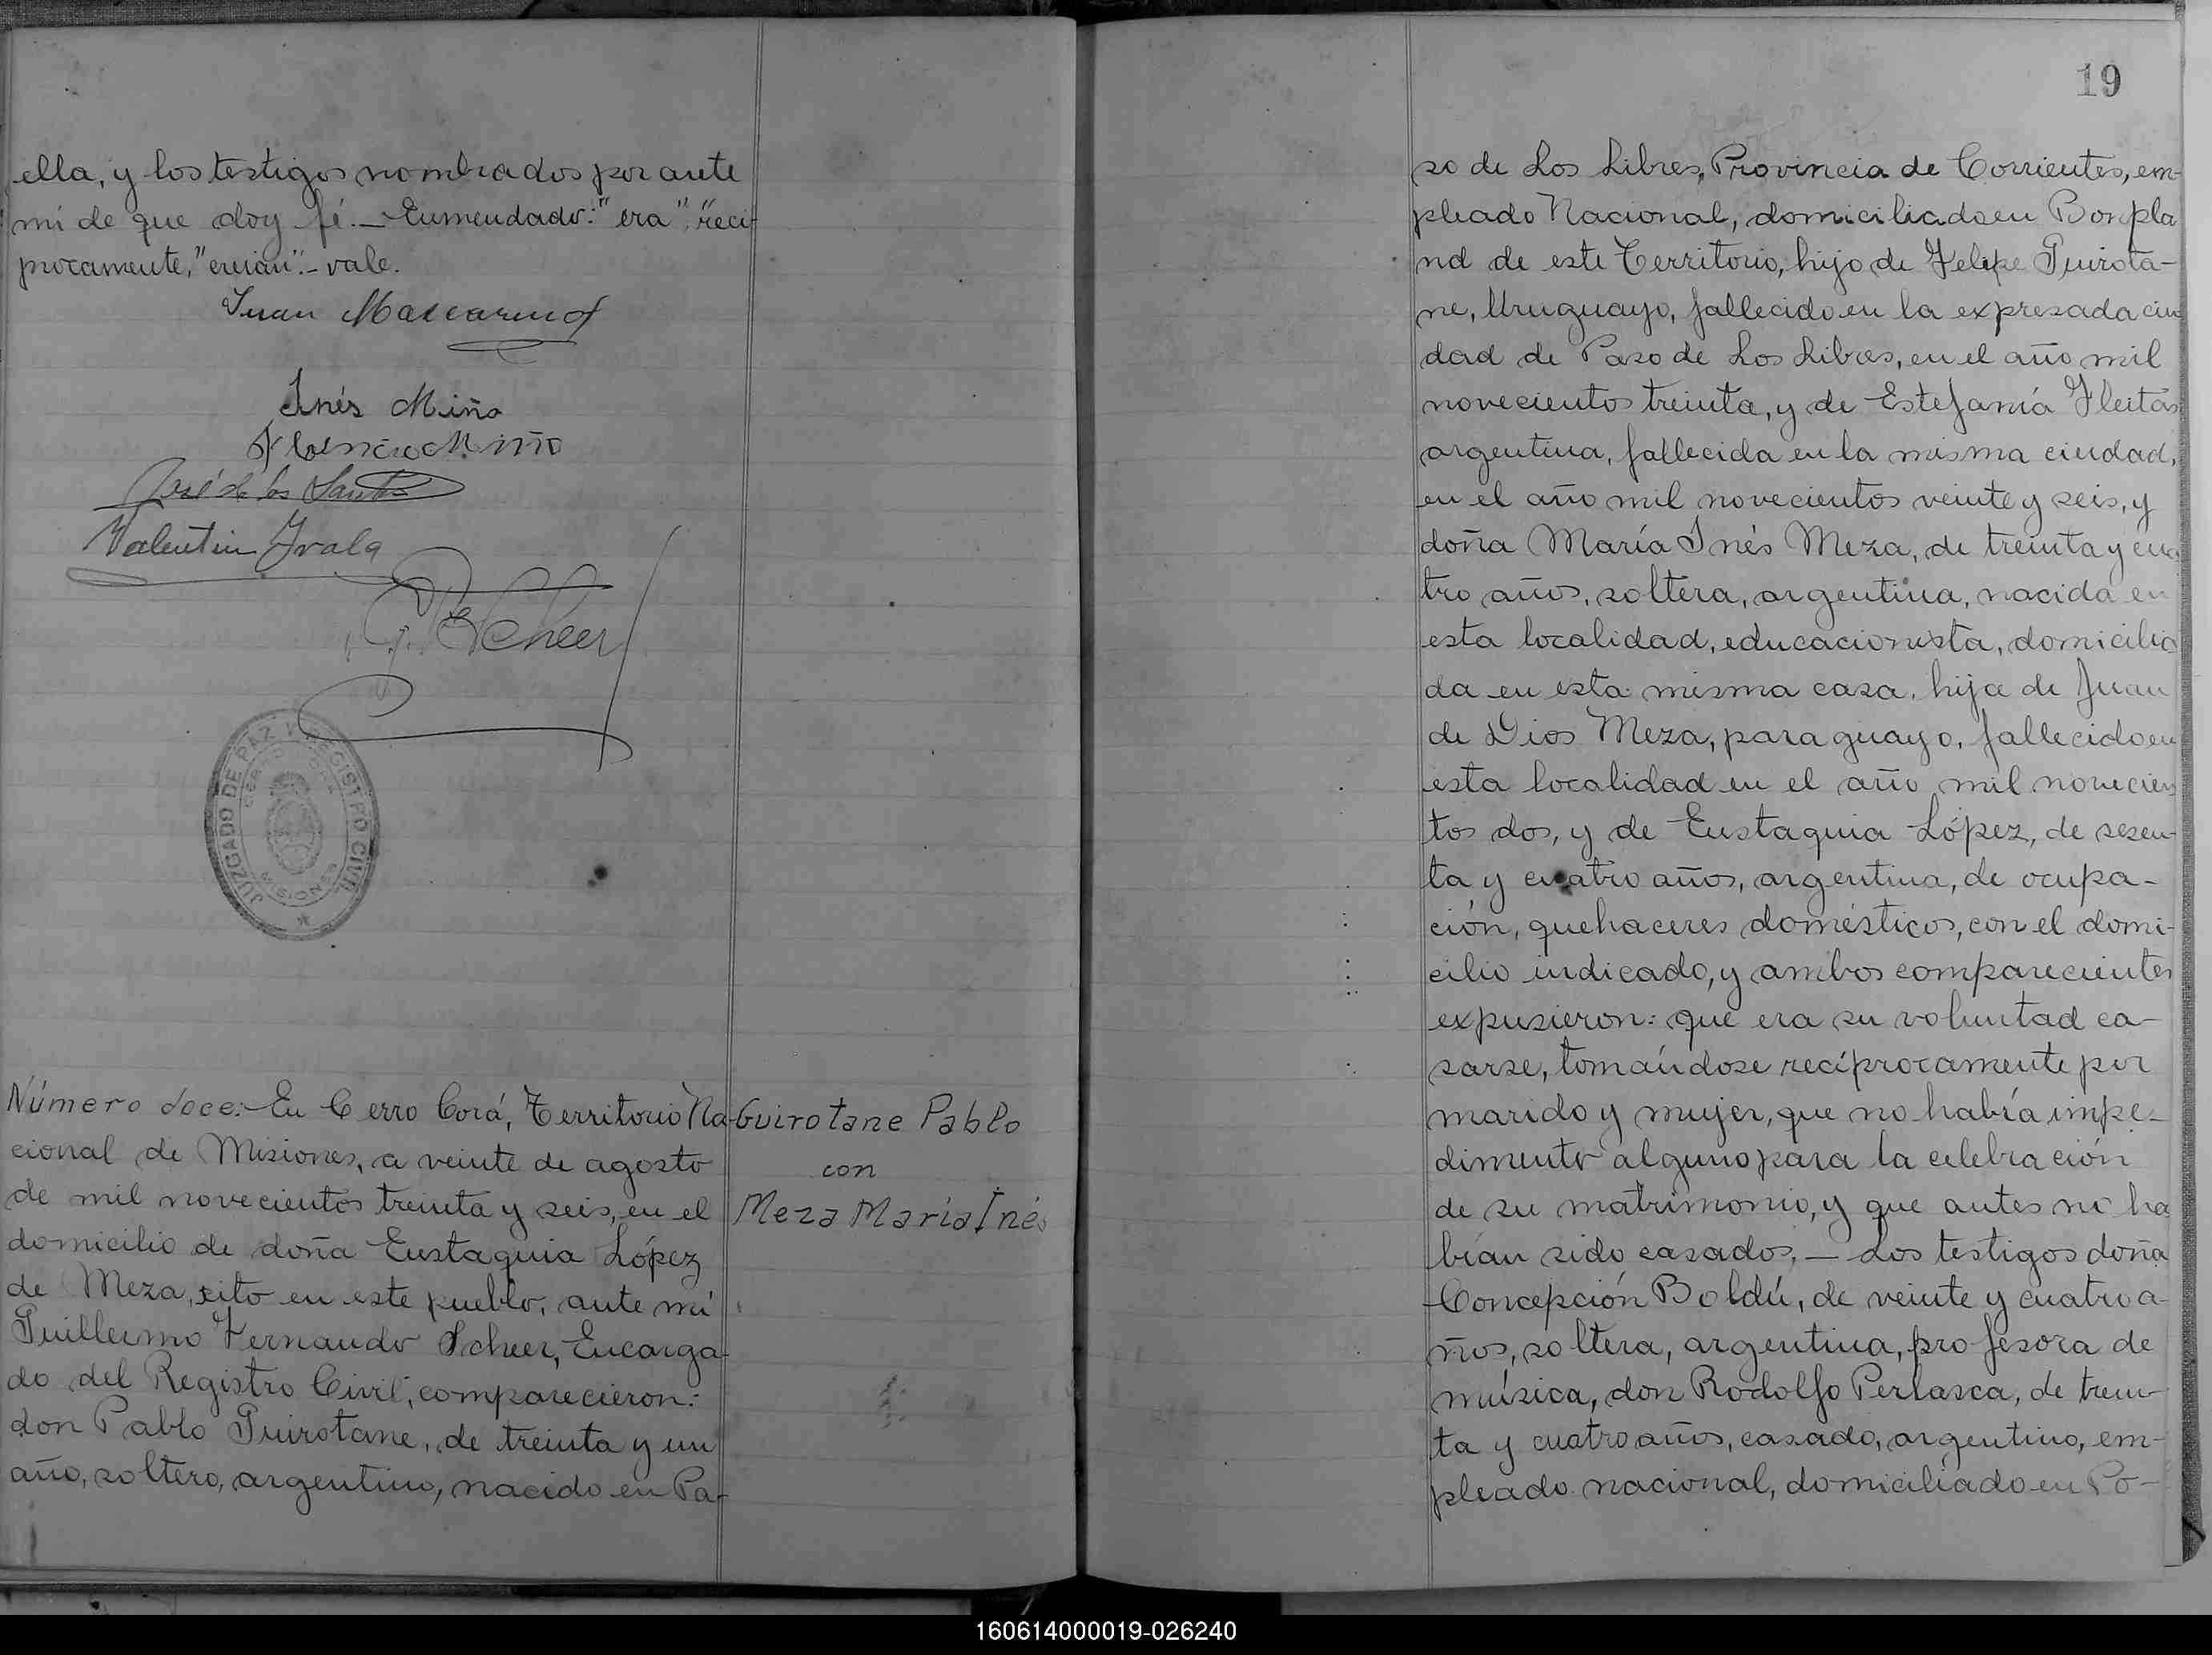 ella, y los testigos nombrados por ante
mí de que doy fé.— Enmendado: "era", "reci-
procamente," "creian".- vale.
Juan Mascareno
Inés Miño
Florencio Miño
José de los Santos
Valentin Irala
G. F. Scheer
JUZGADO DE PAZ Y REGISTRO CIVIL
CERRO CORA
MISIONES
Número doce:- En Cerro Corá, Territorio Na-
cional de Misiones, a veinte de agosto
de mil novecientos treinta y seis, en el
domicilio de doña Eustaquia López
de Meza, sito en este pueblo, ante mí
Guillermo Fernando Scheer, Encarga-
do del Registro Civil, comparecieron:
don Pablo Guirotane, de treinta y un
año, soltero, argentino, nacido en Pa-
Guirotane Pablo
con
Meza María Inés
19
so de Los Libres, Provincia de Corrientes, em-
pleado Nacional, domiciliado en Bonpla
nd de este Territorio, hijo de Felipe Guirota-
ne, Uruguayo, fallecido en la expresada ciu
dad de Paso de Los Libres, en el año mil
novecientos treinta, y de Estefanía Fleitas
argentina, fallecida en la misma ciudad,
en el año mil novecientos veinte y seis, y
doña María Inés Meza, de treinta y cua
tro años, soltera, argentina, nacida en
esta localidad, educacionista, domicilia
da en esta misma casa, hija de Juan
de Dios Meza, paraguayo, fallecido en
esta localidad en el año mil novecien
tos dos, y de Eustaquia López, de sesen-
ta y cuatro años, argentina, de ocupa-
ción, quehaceres domésticos, con el domi-
cilio indicado, y ambos comparecientes
expusieron: que era su voluntad ca-
sarse, tomándose recíprocamente por
marido y mujer, que no había impe-
dimento alguno para la celebración
de su matrimonio, y que antes no ha
bían sido casados.— Los testigos doña
Concepción Boldú, de veinte y cuatro a-
ños, soltera, argentina, profesora de
música, don Rodolfo Perlasca, de trein-
ta y cuatro años, casado, argentino, em-
pleado nacional, domiciliado en Po-
160614000019-026240